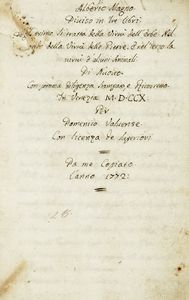 Alberto Magno
Diviso in Tre Libri
Nel primo si tratta della Virtù dell' Erbe Nel
della Virtù delle Pietre, E nel Terzo la
virtù d'alcuni Animali
Di Nuovo
Con somma diligenza Stampato, e Ricorretto
In Venezia M.D.CCX.
Per
Domenico Valvense
Con licenza de Superiori
Da me Copiato
L'anno 1772: